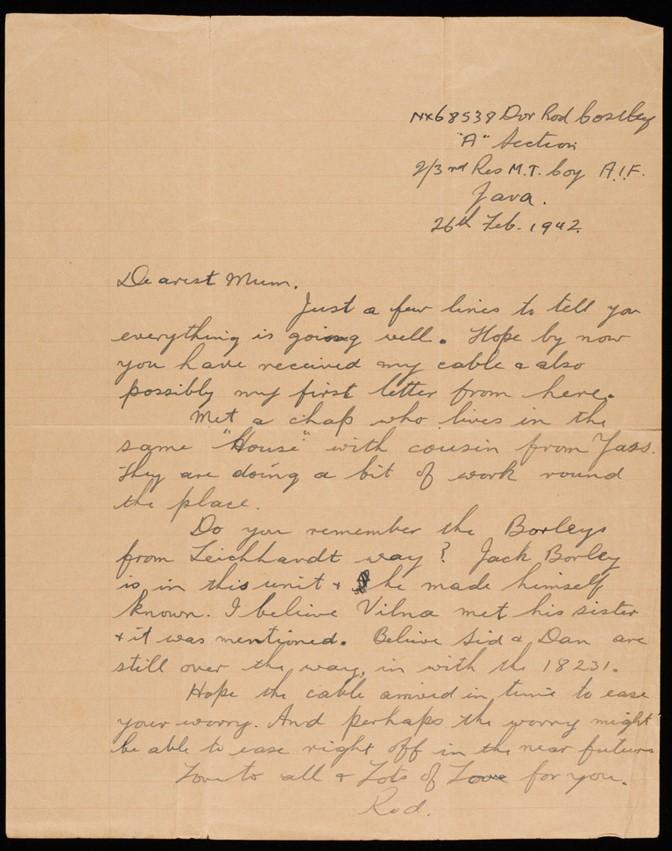 NX68538 Dvr Rod Costley
"A" Section
2/3rd Res M.T. Coy A.I.F.
Java.
26th Feb. 1942.
Dearest Mum.
Just a few lines to tell you
everything is going well. Hope by now
you have received my cable & also
possibly my first letter from here.
Met a chap who lives in the
same "House" with cousin from Yass.
They are doing a bit of work round
the place.
Do you remember the Borleys
from Leichhardt way? Jack Borley
is in this unit & he made himself
known. I believe Vilna met his sister
& it was mentioned. Believe Sid & Dan are
still over the way, in with the 18231.
Hope the cable arrived in time to ease
your worry. And perhaps the worry might
be able to ease right off in the near future
Love to all & Lots of Love for you.
Rod.